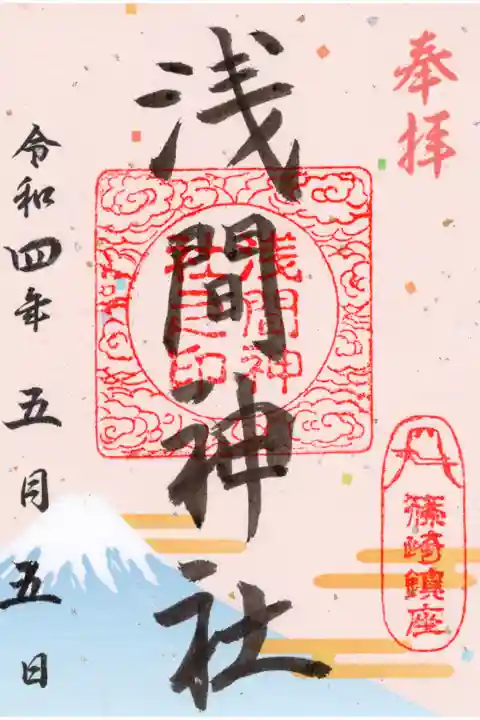 奉拝
篠崎鎮座
浅間神社
浅間神
社之印
令和四年五月五日